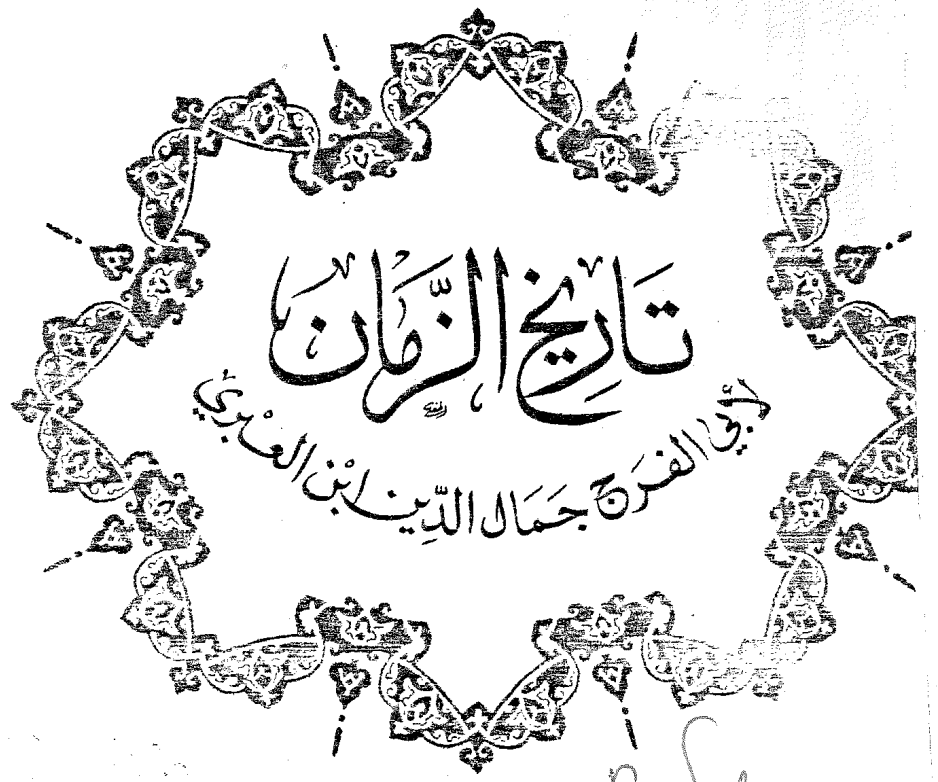 تَارِيخ الزَّمَان
لأبي الفَرَج جَمَال الدِّين ابْن العِبْري